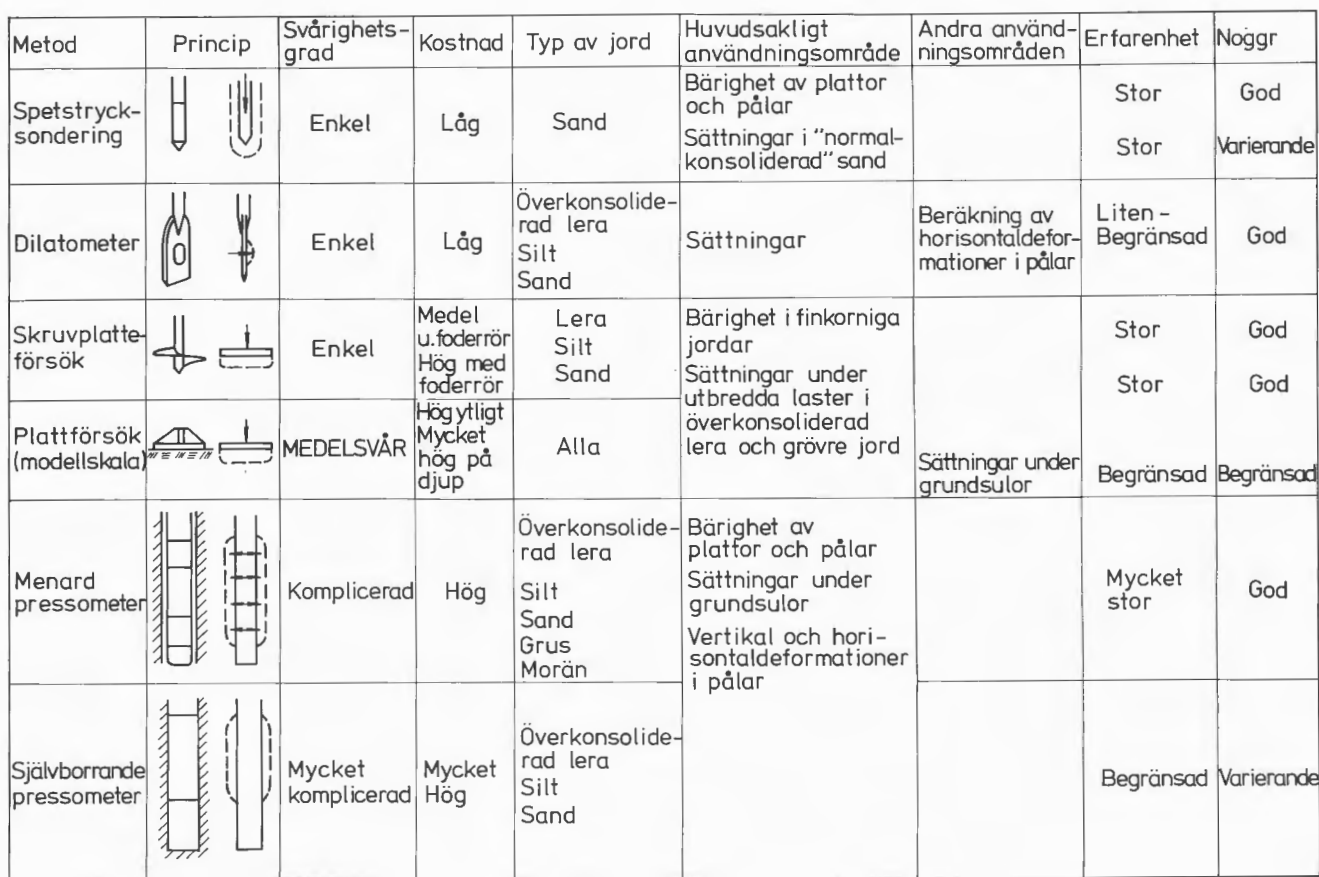 Metod
Princip
Svårighets-
grad
Kostnad
Typ av jord
Huvudsakligt
användningsområde
Andra använd-
ningsområden
Erfarenhet
Noggr
Spetstryck-
sondering
Enkel
Låg
Sand
Bärighet av plattor
och pålar
Sättningar i "normal-
konsoliderad" sand
Stor
God
Stor
Varierande
Dilatometer
Enkel
Låg
Överkonsolide-
rad lera
Silt
Sand
Sättningar
Beräkning av
horisontaldefor-
mationer i pålar
Liten -
Begränsad
God
Skruvplatte-
försök
Enkel
Medel
u.foderrör
Hög med
foderrör
Lera
Silt
Sand
Bärighet i finkorniga
jordar
Sättningar under
utbredda laster i
överkonsoliderad
lera och grövre jord
Stor
God
Stor
God
Plattförsök
(modellskala)
MEDELSVÅR
Hög ytligt
Mycket
hög på
djup
Alla
Sättningar under
grundsulor
Begränsad
Begränsad
Menard
pressometer
Komplicerad
Hög
Överkonsolide-
rad lera
Silt
Sand
Grus
Morän
Bärighet av
plattor och pålar
Sättningar under
grundsulor
Vertikal och hori-
sontaldeformationer
i pålar
Mycket
stor
God
Självborrande
pressometer
Mycket
komplicerad
Mycket
Hög
Överkonsolide-
rad lera
Silt
Sand
Begränsad
Varierande